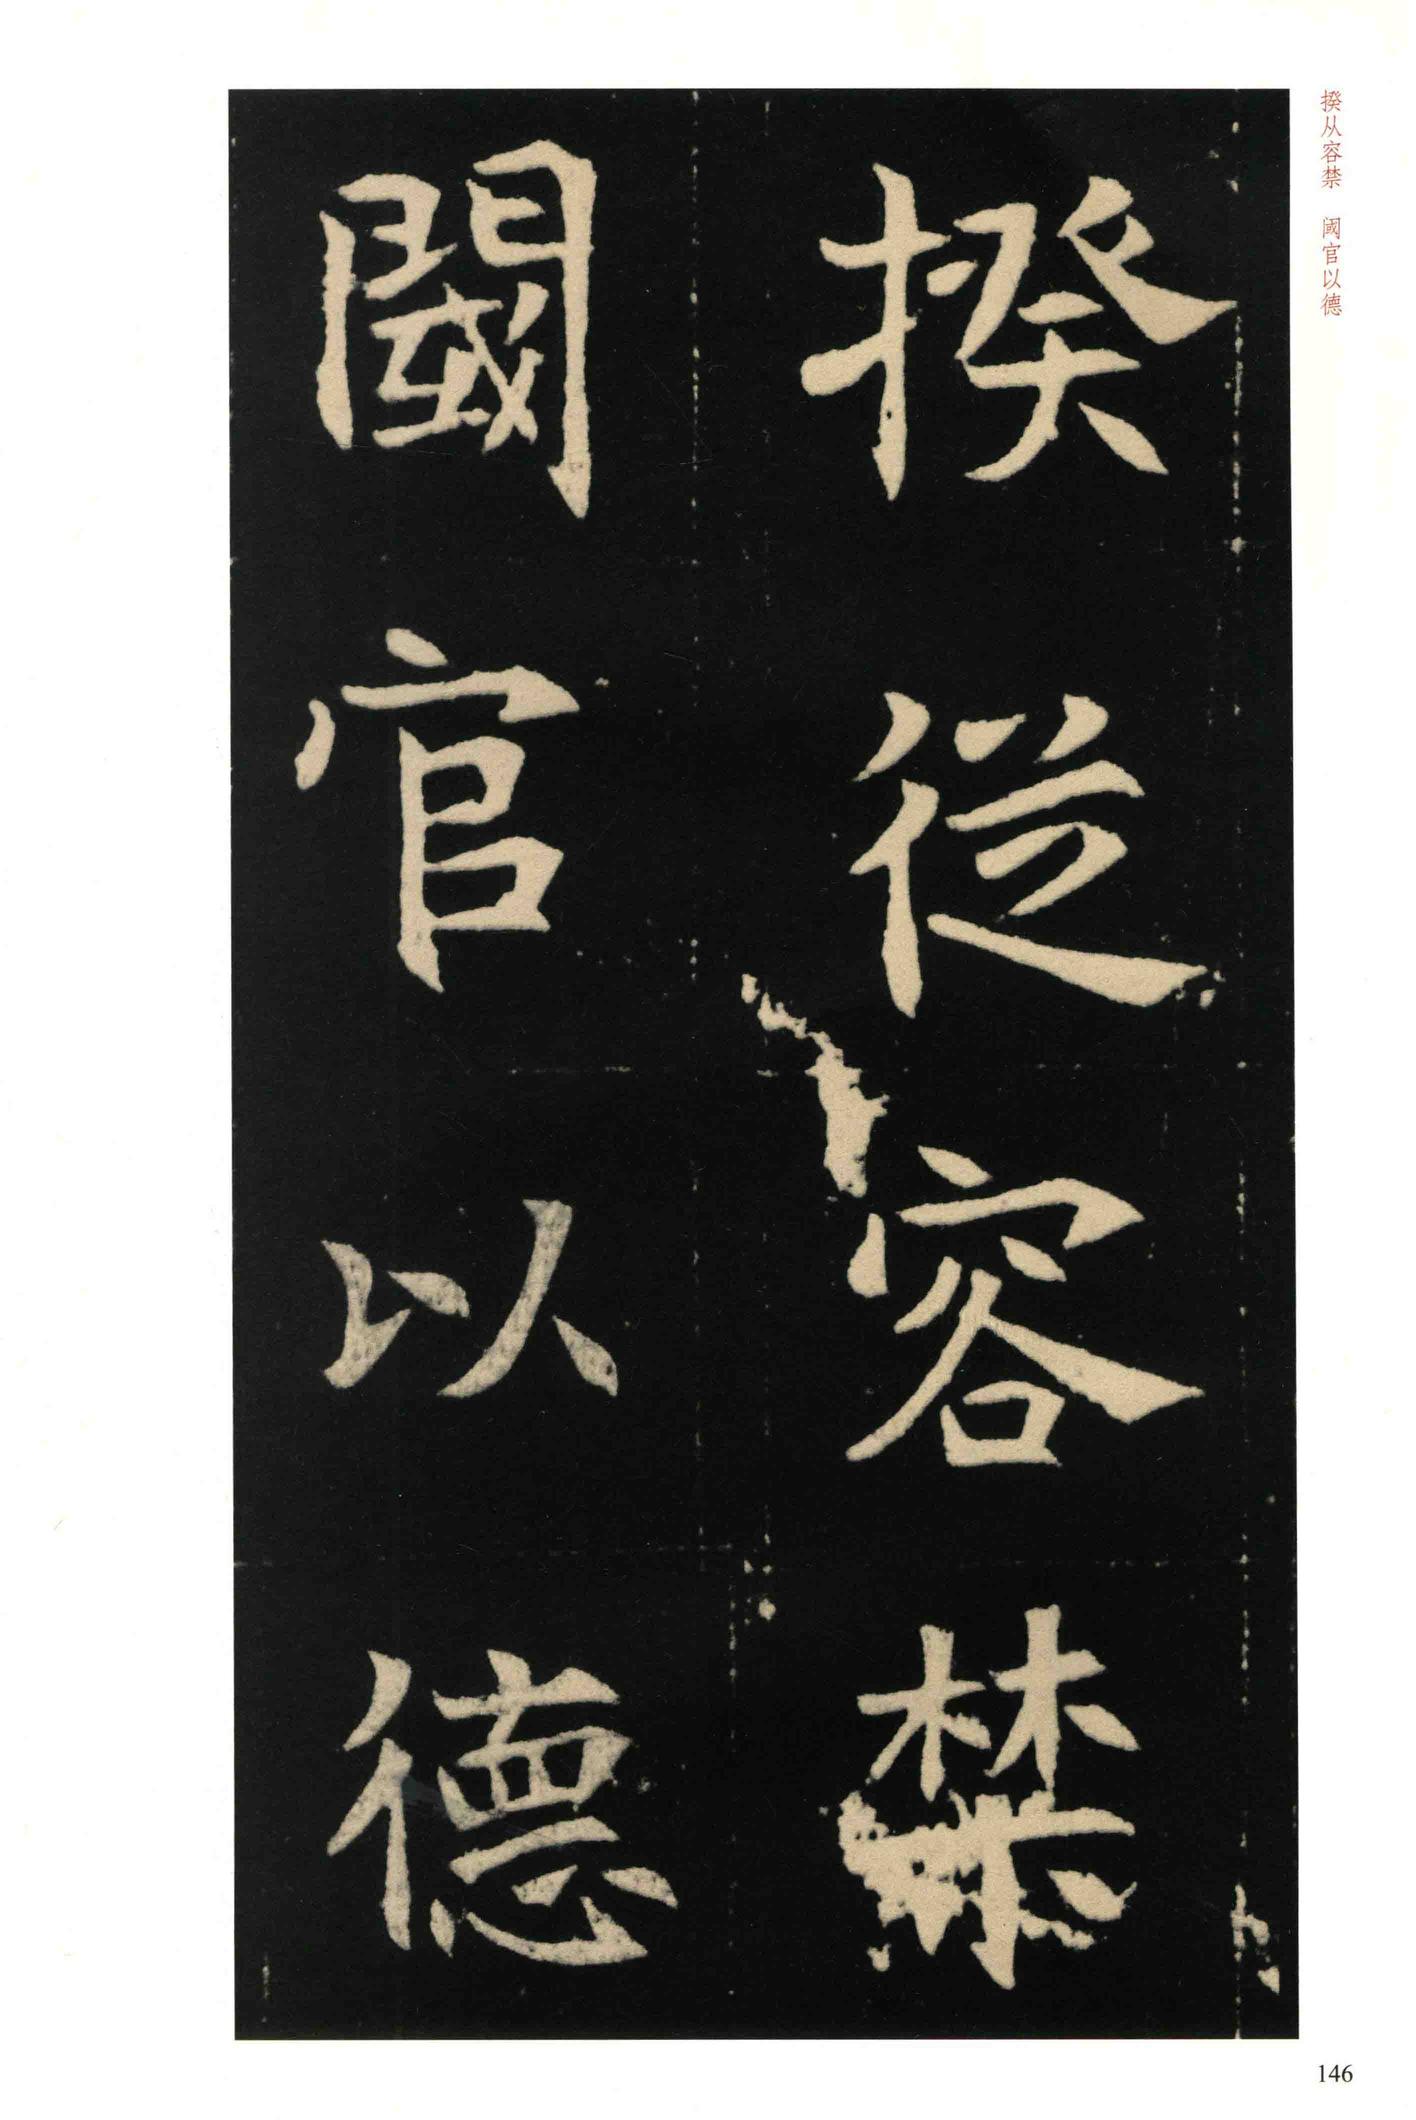 揆從容禁
閾官以德
揆从容禁　阈官以德
146